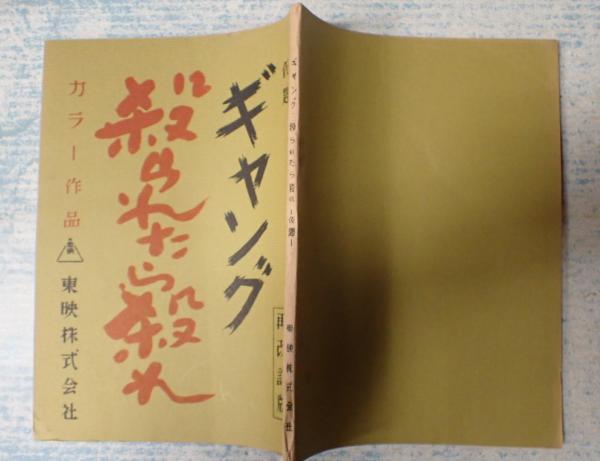 ギャング
殺られたら殺れ
カラー作品
東映株式会社
ギャング 殺られたら殺れ ー仮題ー
東映株式会社